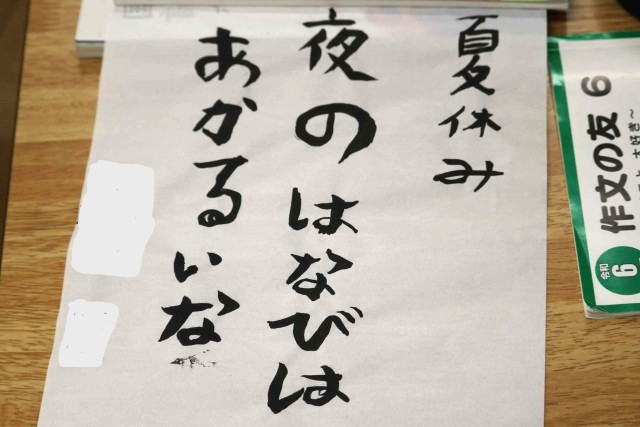 夏休み
夜のはなびは
あかるいな
作文の友 6
令和
6